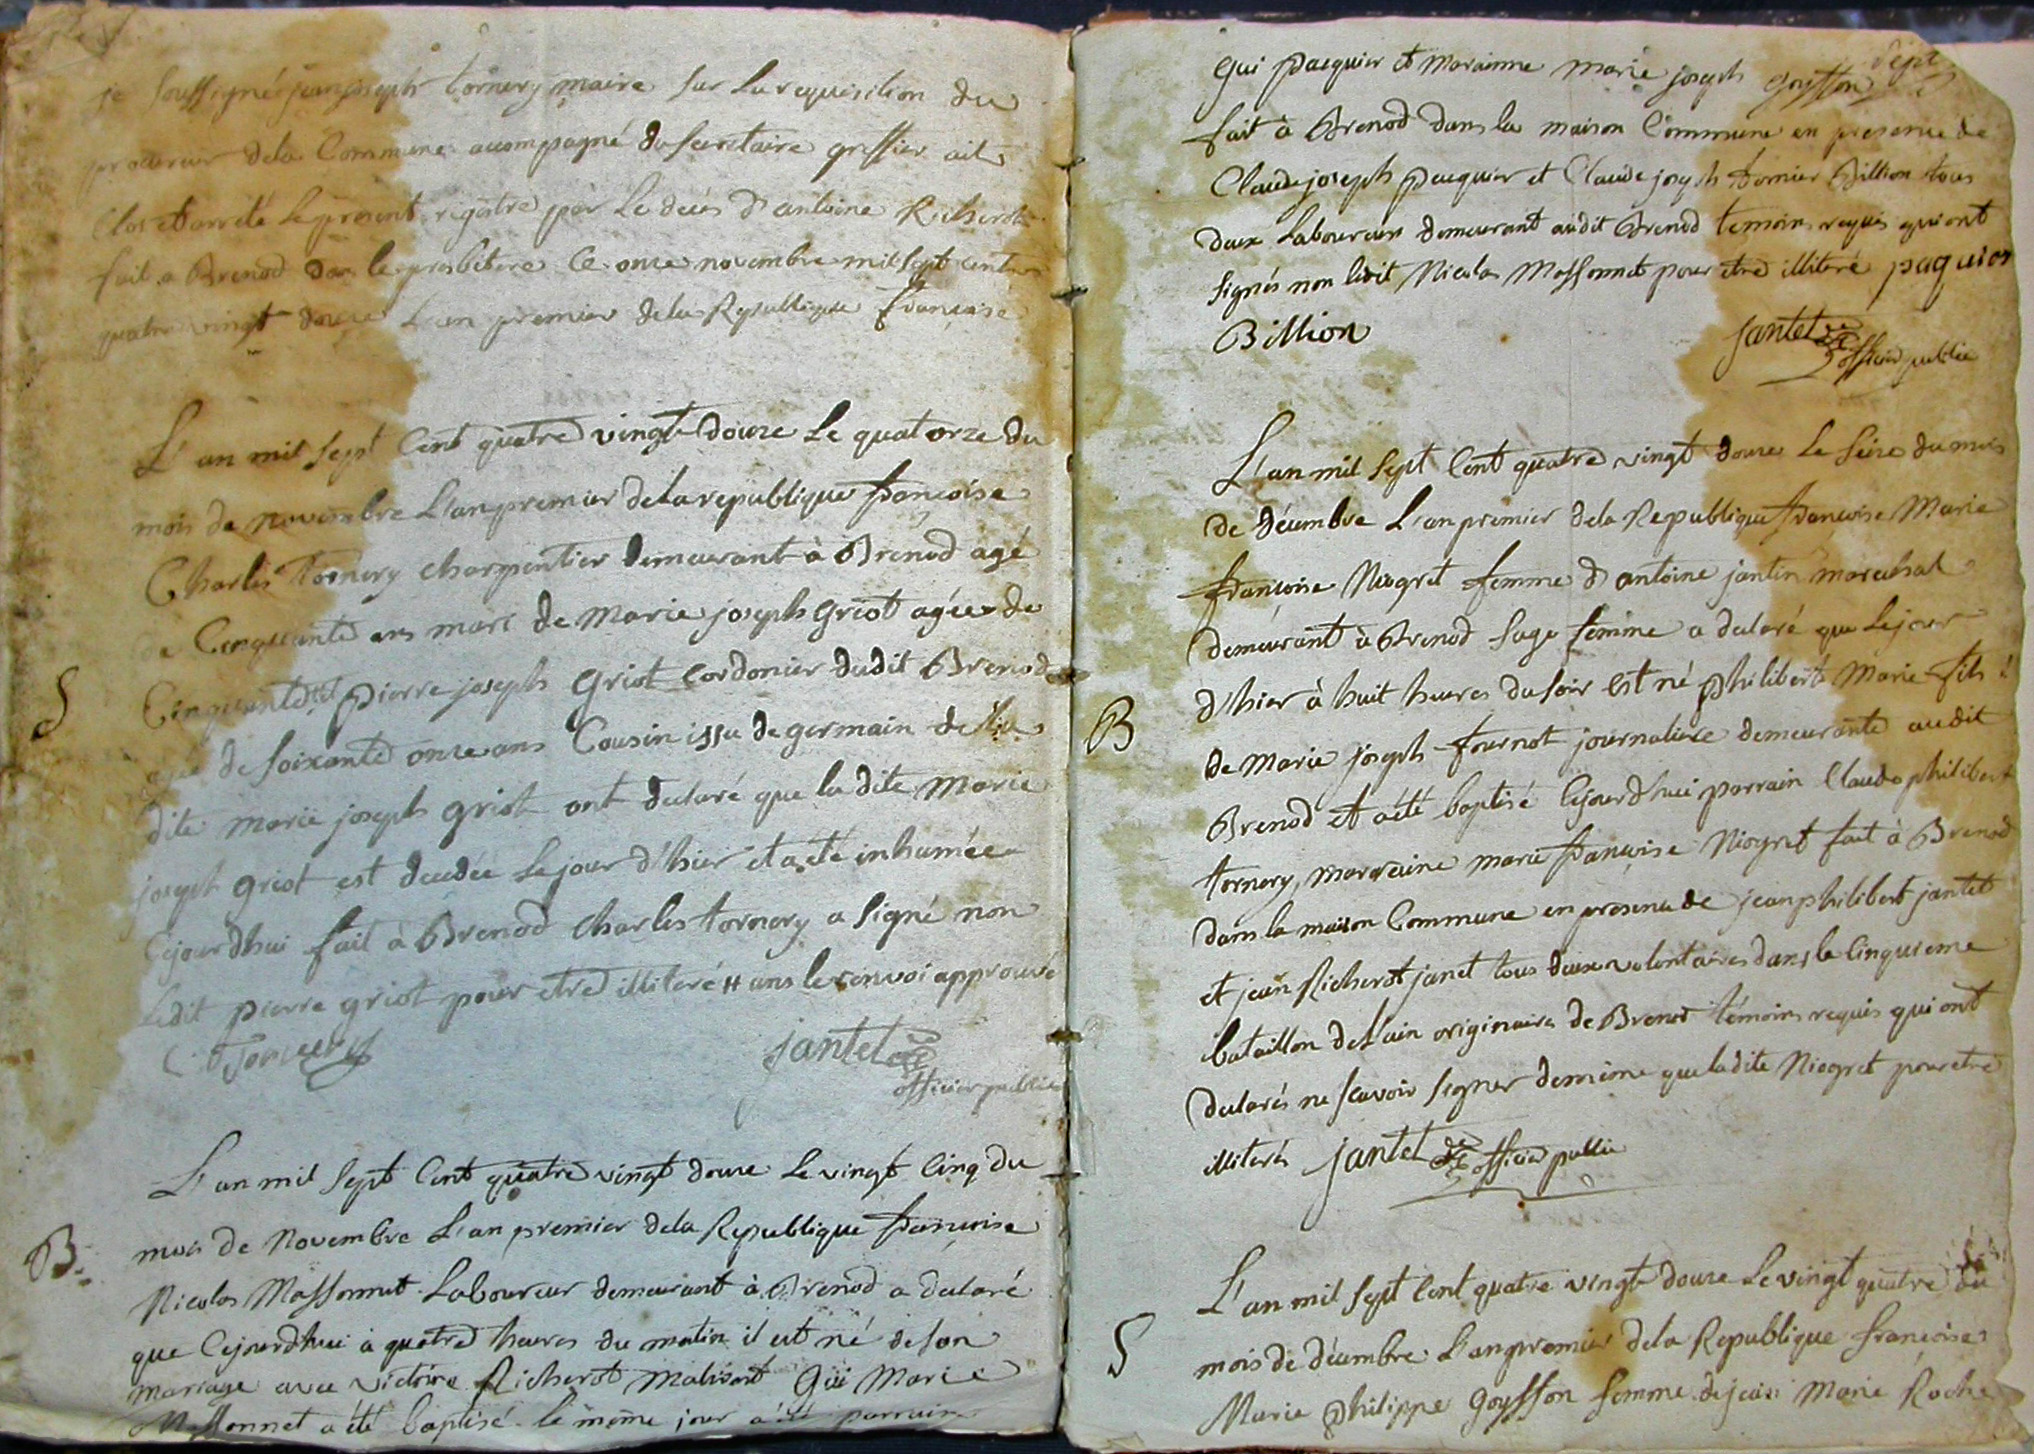 je soussigné jean joseph tornery maire sur la requisition du
procureur dela Commune accompagné du secretaire greffier ait
Clos et arrété le present régistre par le deces d'antoine Richerot
fait a Brenod dans le presbitere ce onze novembre mil sept cents
quatre vingt douze L'an premier dela Republique françoise
L'an mil sept Cent quatre vingt douze Le quatorze du
mois de novembre L'an premier de la republique françoise
Charles Tornery charpentier demeurant à Brenod agé
de Cinquante ans mari de Marie joseph Griot agée de
Cinquante pierre joseph Griot Cordonier dudit Brenod
S
agé de soixante onze ans Cousin issu de germain de la
dite marie joseph griot ont declaré que la dite Marie
joseph griot est decedée Le jour d'hier et a eté inhumée
Cejourdhui fait à Brenod Charles tornery a signé non
Ledit pierre griot pour etre illiteré # ans le renvoi approuvé
C Tornery jantet
officier public
L'an mil sept Cent quatre vingt douze Le vingt Cinq du
B.
mois de Novembre L'an premier dela Republique françoise
Nicolas Massonnet Laboureur demeurant à Brenod a declaré
que Cejourdhui a quatre heures du matin il est né de son
mariage avec victoire Richerot Malivert Gui Marie
Massonnet a été baptisé le même jour a été parrain
Sept
Gui pacquier et Marainne Marie joseph Goyffon
fait à Brenod dans la maison Commune en presence de
Claude joseph pacquier et Claude joseph tornier Billion tous
deux Laboureurs demeurant audit Brenod temoins requis qui ont
signés non ledit Nicolas Massonnet pour etre illiteré paquier
Billion jantet
officier public
L'an mil sept Cent quatre vingt douze Le seize du mois
de décembre L'an premier dela Republique françoise Marie
françoise Niogret femme d'antoine jantin marechal
demeurant à Brenod sage femme a declaré que Le jour
d'hier à huit heures du soir est né philibert Marie fils
B
de Marie joseph fournot journaliere demeurante audit
Brenod et a été baptisé Cejourdhui parrain Claude philibert
tornery, marraine marie françoise Niogret fait à Brenod
dans la maison Commune en presence de jean philibert jantet
et jean Richerot janet tous deux volontaires dans le Cinquieme
bataillon de L'ain originaires de Brenod témoins requis qui ont
declarés ne scavoir signer de meme que ladite Niogret pour etre
illiterés jantet officier public
L'an mil sept Cent quatre vingt douze Le vingt quatre du
S
mois de décembre L'an premier dela Republique françoise
Marie philippe Goyffon femme de jean Marie Roche